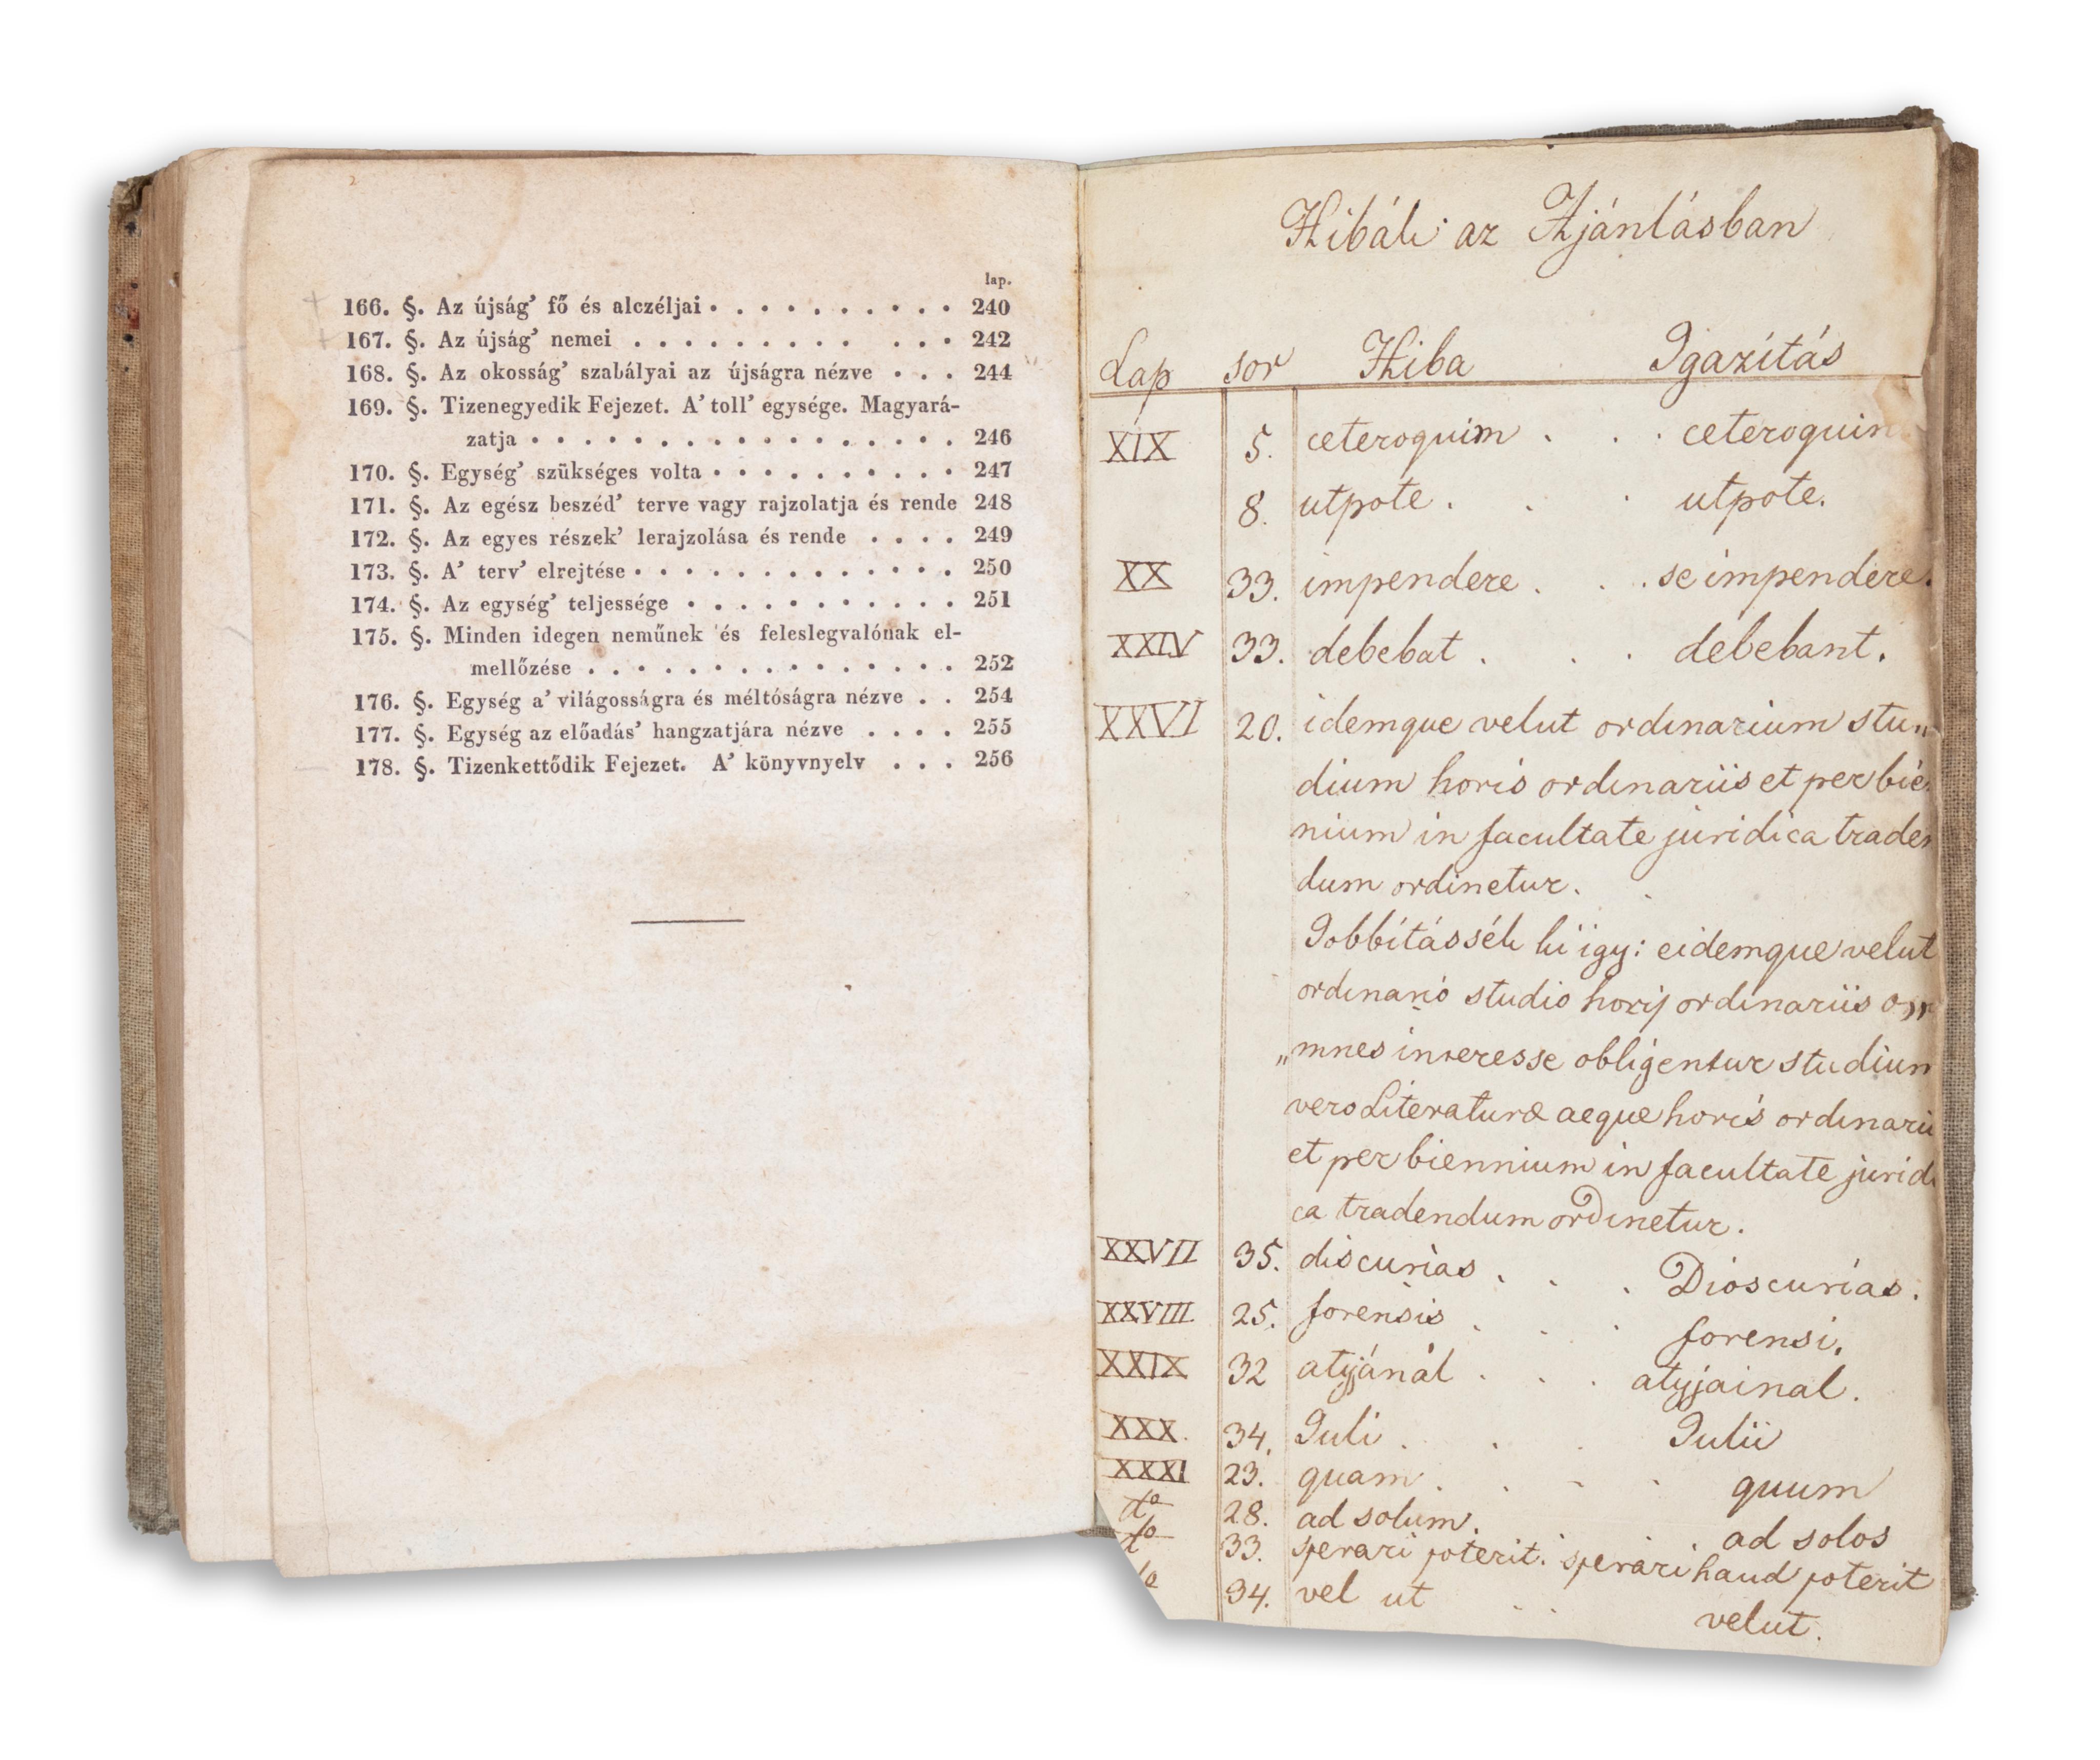 lap.
166. §. Az újság’ fő és alczéljai . . . . . . . . . . 240
167. §. Az újság’ nemei . . . . . . . . . . . . 242
168. §. Az okosság’ szabályai az újságra nézve . . . 244
169. §. Tizenegyedik Fejezet. A’ toll’ egysége. Magyará-
zatja . . . . . . . . . . . . . . . . . 246
170. §. Egység’ szükséges volta . . . . . . . . . . 247
171. §. Az egész beszéd’ terve vagy rajzolatja és rende 248
172. §. Az egyes részek’ lerajzolása és rende . . . . 249
173. §. A’ terv’ elrejtése . . . . . . . . . . . . . 250
174. §. Az egység’ teljessége . . . . . . . . . . . 251
175. §. Minden idegen neműnek ’és feleslegvalónak el-
mellőzése . . . . . . . . . . . . . . . 252
176. §. Egység a’ világosságra és méltóságra nézve . . 254
177. §. Egység az előadás’ hangzatjára nézve . . . . 255
178. §. Tizenkettődik Fejezet. A’ könyvnyelv . . . 256
Hibák az Ajánlásban
Lap sor Hiba Igazítás
XIX 5. ceteroquim . . . ceteroquin
8. utpote . . . utpote.
XX 33. impendere . . . se impendere.
XXIV 33. debebat . . . debebant.
XXVI 20. idemque velut ordinarium stu„
dium horis ordinariis et per bie
nium in facultate juridica traden
dum ordinetur.
Jobbítássék ki igy: eidemque velut
ordinario studio horis ordinariis o„
„mnes interesse obligentur studium
vero Literaturæ aeque horis ordinarii
et per biennium in facultate juridi
ca tradendum ordinetur.
XXVII 35. discurias . . . Dioscurias.
XXVIII 25. forensis . . . forensi.
XXIX 32 atyjánál . . . atyjainal.
XXX. 34. Juli . . . Julii
XXXI 23. quam . . . . quum
do 28. ad solum. . ad solos
do 33. sperari poterit. sperari haud poterit
34. vel ut . . velut.